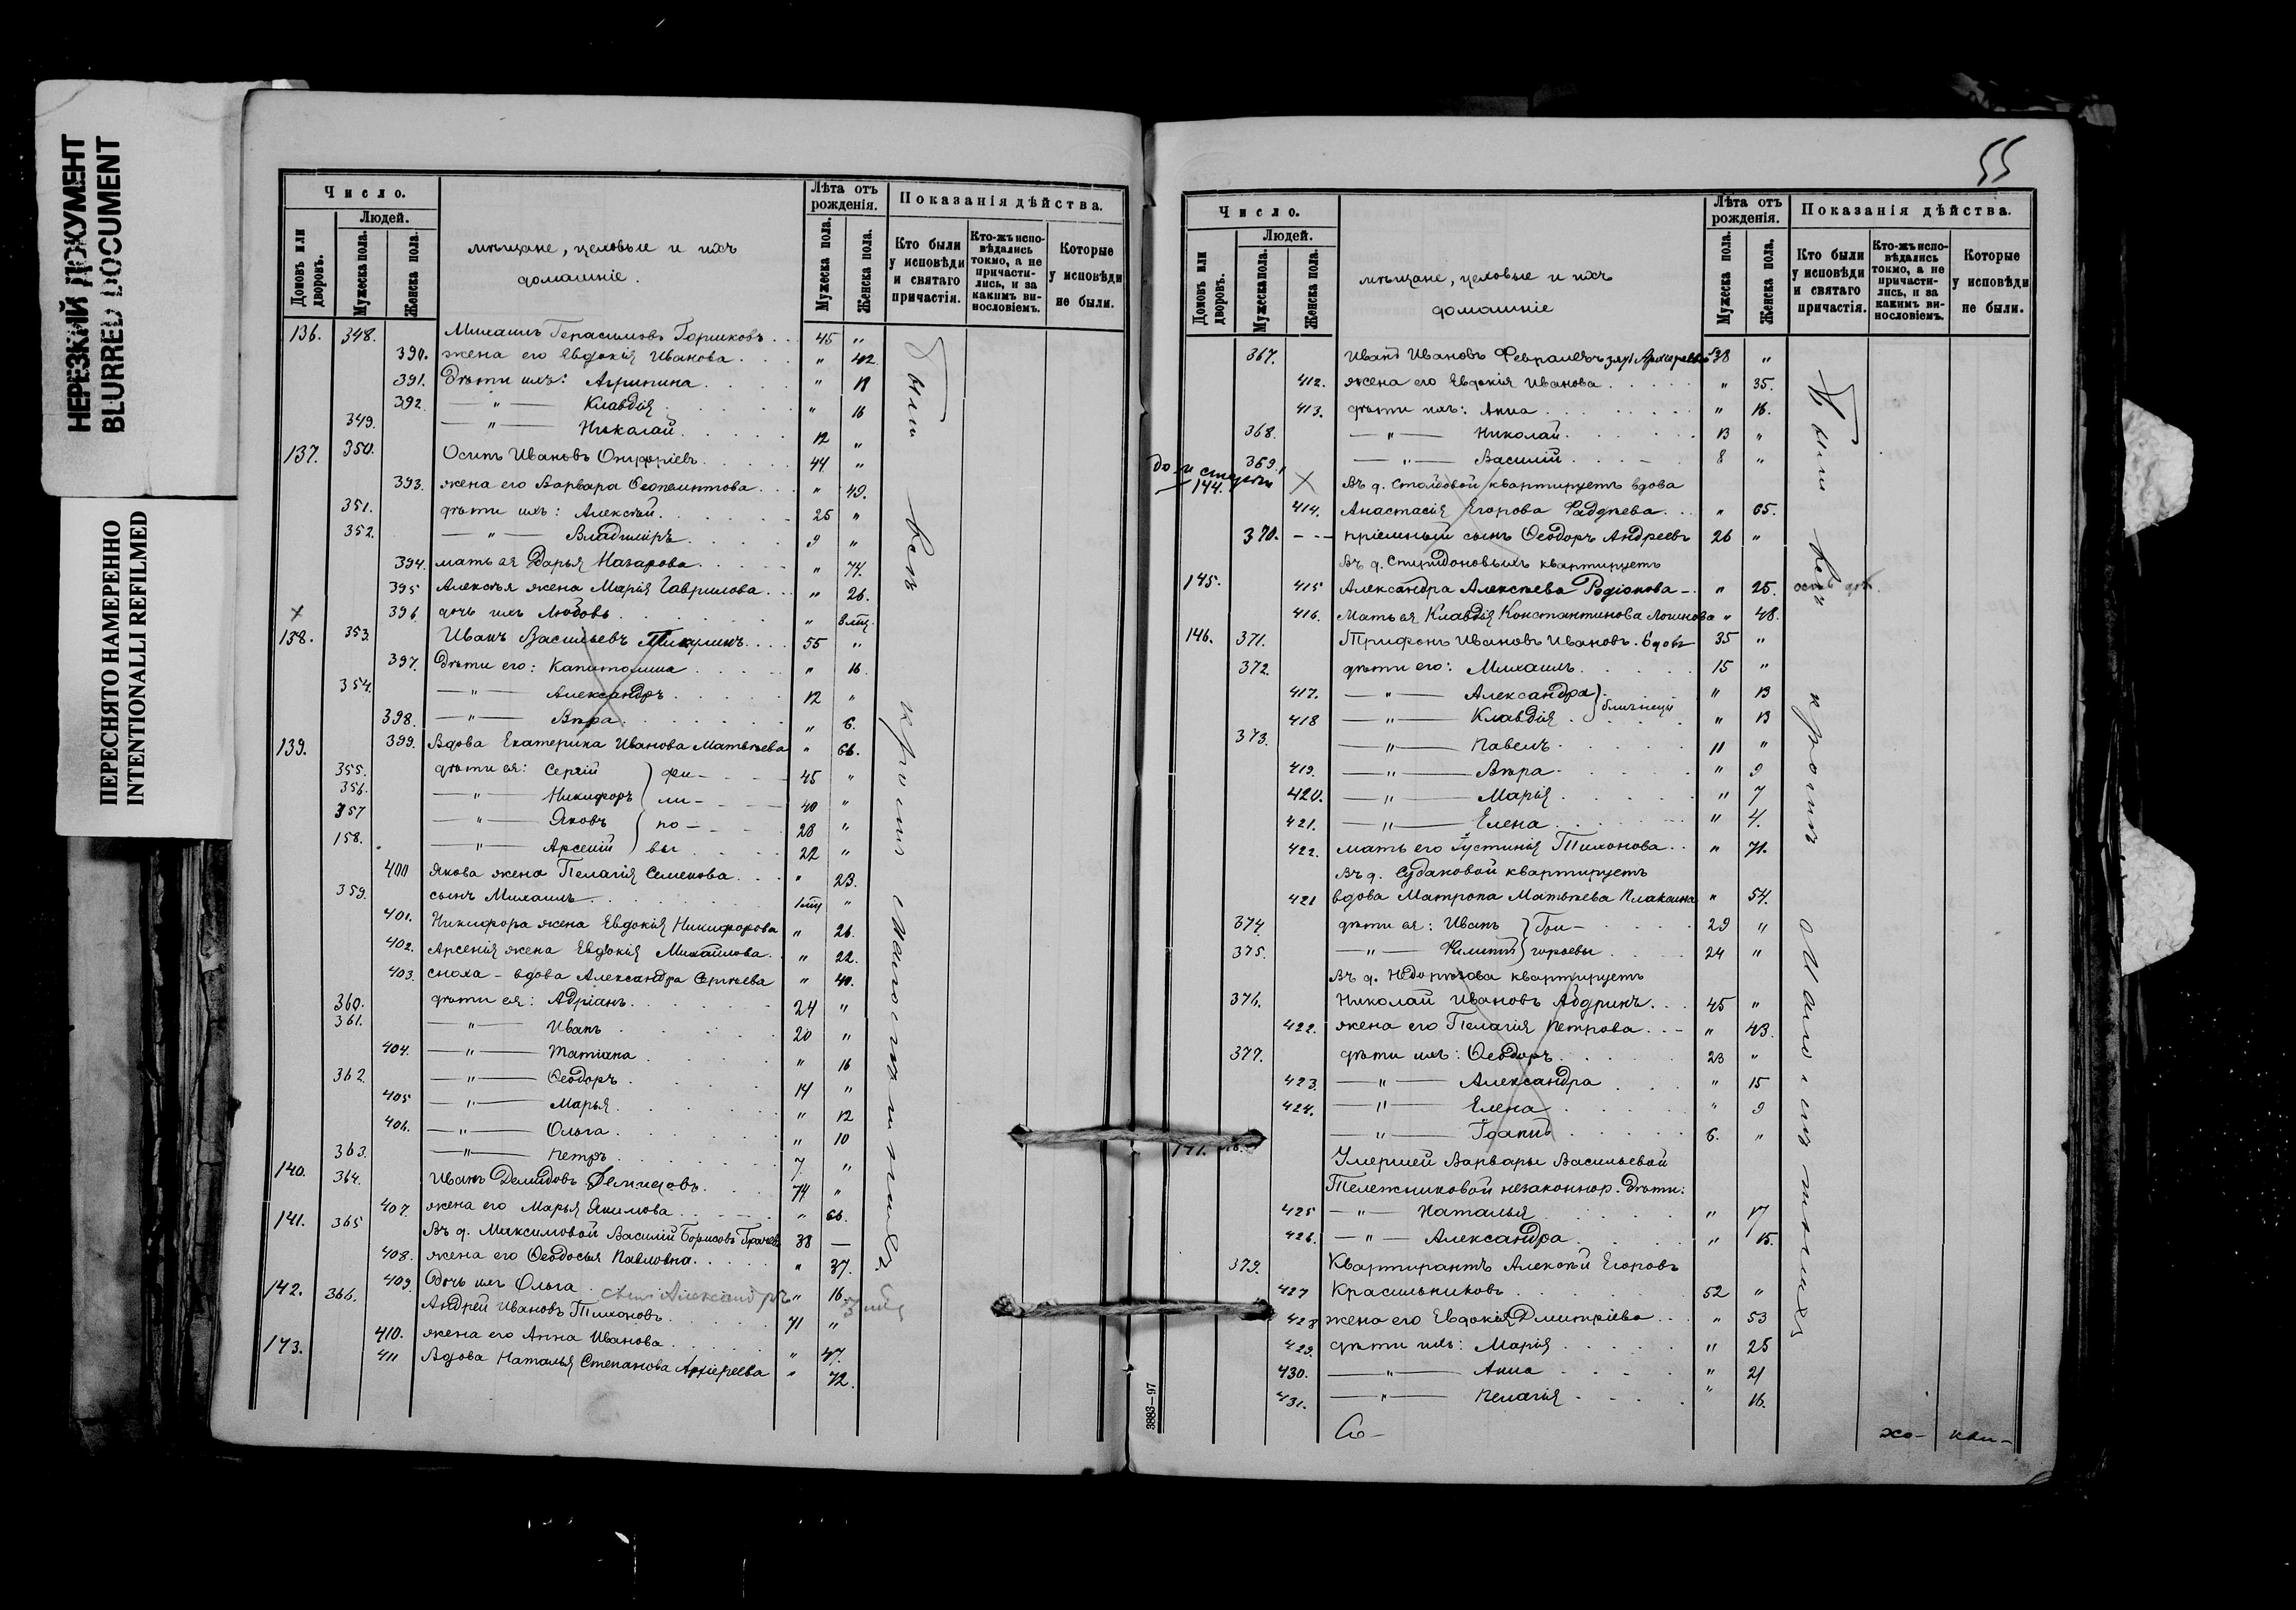 НЕРЕЗКИЙ ДОКУМЕНТ
BLURRED DOCUMENT
ПЕРЕСНЯТО НАМЕРЕННО
INTENTIONALLI REFILMED
Число.
Людей.
Домовъ или дворовъ.
Мужеска пола.
Женска пола.
мѣщане, цеховые и ихъ
домашніе.
Лѣта отъ рожденія.
Мужеска пола.
Женска пола.
Показанія дѣйства.
Кто были у исповѣди и святаго причастія.
Кто-жъ исповѣдались токмо, а не причастились, и за какимъ винословіемъ.
Которые у исповѣди не были.
136. 348. Михаилъ Герасимовъ Горшковъ 45 "
390. жена его Евдокія Иванова " 42
391. Дѣти ихъ: Агрипина " 18
392. — " — Клавдія " 16
349. — " — Николай 12 "
137. 350. Осипъ Ивановъ Онуфріевъ 44 "
393. жена его Варвара Ѳеопемптова " 49.
351. дѣти ихъ: Алексѣй 25 "
352. — " — Владиміръ 9 "
394. мать ея Дарья Назарова " 74.
395 Алексѣя жена Марія Гаврилова " 26.
396. дочь ихъ Любовь " 8 мц.
138. 353. Иванъ Васильевъ Пикулинъ 55 "
397. Дѣти его: Капитолина " 16
354. — " — Александръ 12 "
398. — " — Вѣра " 6.
139. 399. Вдова Екатерина Иванова Матвѣева " 66.
355. дѣти ея: Сергій ) фи- 45 "
356. — " — Никифоръ ли- 40 "
357 — " — Яковъ по- 28 "
158. — " — Арсеній ) вы 22 "
400 Якова жена Пелагія Семенова " 23.
359. сынъ Михаилъ 1 мц "
401. Никифора жена Евдокія Никифорова " 26.
402. Арсенія жена Евдокія Михайлова " 22.
403. сноха - вдова Александра Сергѣева " 40.
360. дѣти ея: Адріанъ 24 "
361. — " — Иванъ 20 "
404. — " — Татіана " 16
362. — " — Ѳеодоръ 14 "
405 — " — Марья " 12
406. — " — Ольга " 10
363. — " — Петръ 7 "
140. 364. Иванъ Демидовъ Демидовъ 74 "
407. жена его Марья Якимова " 66.
141. 365 Въ д. Максимовой Василій Борисовъ Грачевъ 38 —
408. жена его Ѳеодосья Павловна " 37.
409. Дочь ихъ Ольга сынъ Александръ " 16
142. 366. Андрей Ивановъ Тихоновъ 71 "
410. жена его Анна Иванова " 47.
143. 411 Вдова Наталья Степанова Архіереева " 72.
Были всѣ кромѣ малолѣтнихъ
55
Число.
Людей.
Домовъ или дворовъ.
Мужеска пола.
Женска пола.
мѣщане, цеховые и ихъ
домашніе
Лѣта отъ рожденія.
Мужеска пола.
Женска пола.
Показанія дѣйства.
Кто были у исповѣди и святаго причастія.
Кто-жъ исповѣдались токмо, а не причастились, и за какимъ винословіемъ.
Которые у исповѣди не были.
367. Иванъ Ивановъ 38 "
412. жена его Евдокія Иванова " 35.
413. дѣти ихъ: Анна " 16.
368. — " — Николай 13 "
369. — " — Василій 8 "
144. Въ д. квартируетъ вдова
414. Анастасія Егорова Фаддѣева " 65.
370. - - - пріемный сынъ Ѳеодоръ Андреевъ 26 "
Въ д. Спиридоновыхъ квартируетъ
145. 415 Александра Алексѣева Родіонова " 25.
416. Мать ея Клавдія Константинова Логинова " 48.
146. 371. Трифонъ Ивановъ Ивановъ. вдовъ 35 "
372. дѣти его: Михаилъ 15 "
417. — " — Александра ) " 13
418 — " — Клавдія ) близнецы " 13
373. — " — Павелъ 11 "
419. — " — Вѣра " 9
420. — " — Марія " 7
421. — " — Елена " 4.
422. мать его Іустинія Тихонова " 71.
Въ д. Судаковой квартируетъ
421 вдова Матрона Матвѣева Плакина " 54.
374. дѣти ея: Иванъ ) Гри- 29 "
375. — " — Филиппъ ) горьевы 24 "
Въ д. квартируетъ
376. Николай Ивановъ 45 "
422. жена его Пелагія Петрова " 43.
377. дѣти ихъ: Ѳеодоръ 23 "
423. — " — Александра " 15
424. — " — Елена " 9
— " — Іоаннъ 6. "
Умершей Варвары Васильевой
Тележниковой незаконнор. дѣти:
425 — " — Наталья " 17
426. — " — Александра " 15.
379. Квартирантъ Алексѣй Егоровъ
427 Красильниковъ 52 "
428 жена его Евдокія Дмитріева " 53
429. дѣти ихъ: Марія " 25
430. — " — Анна " 21
431. — " — Пелагія " 16.
Были всѣ кромѣ малолѣтнихъ
3883—97